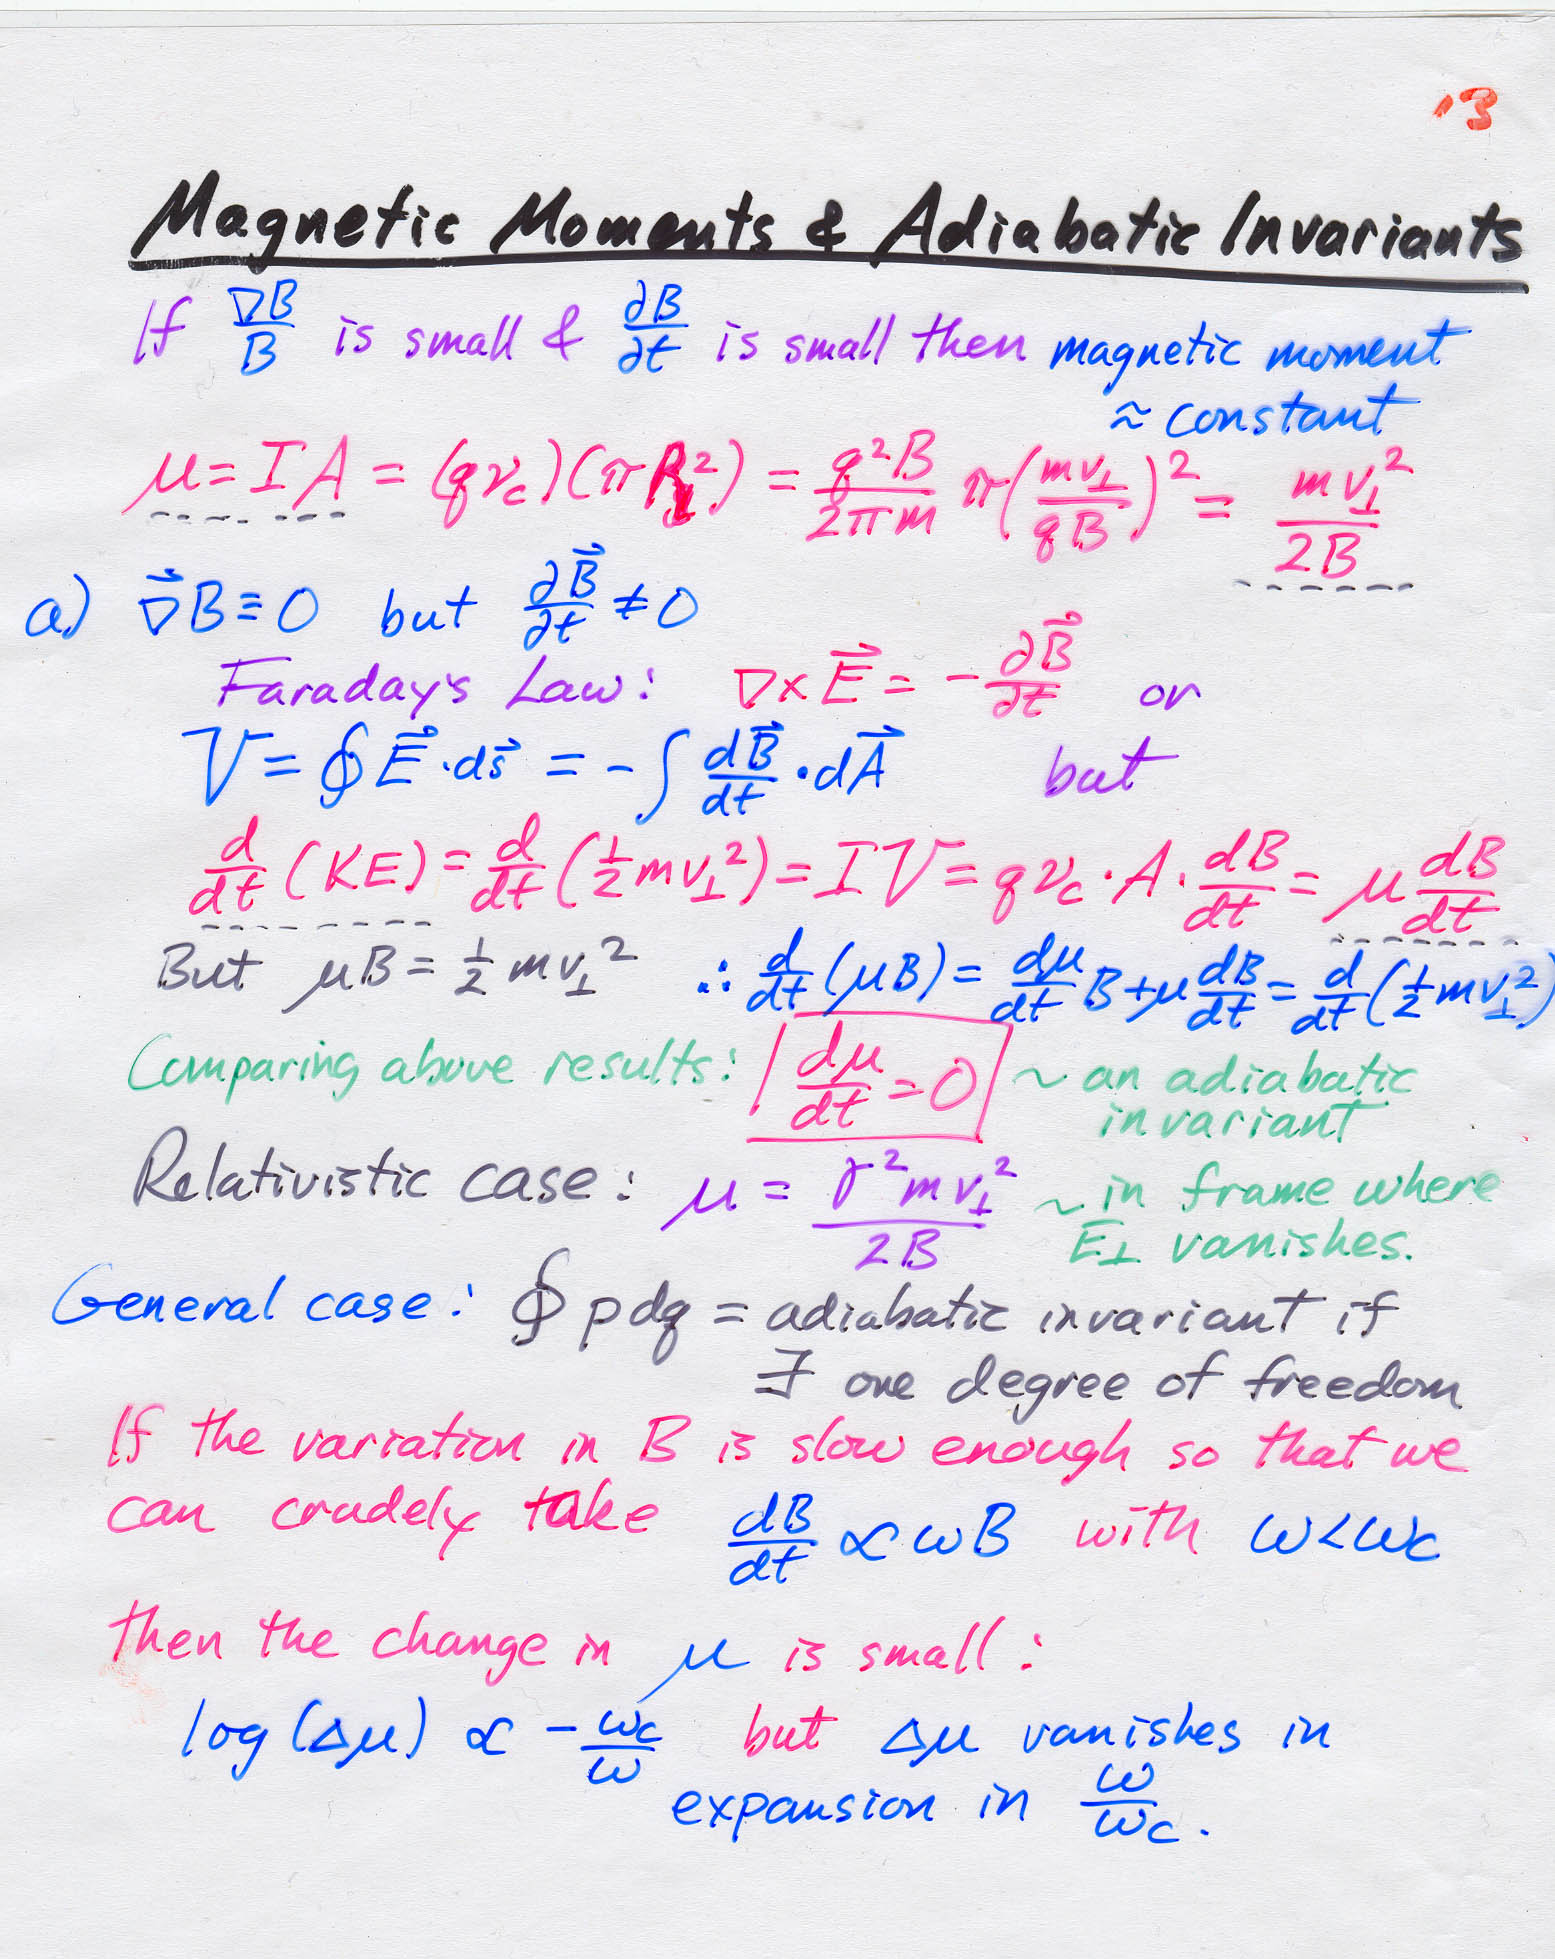 13
Magnetic Moments & Adiabatic Invariants
If ∇B/B is small & ∂B/∂t is small then magnetic moment
≈ constant
μ = I A = (qν_c)(πR_⊥²) = q²B/2πm π(mv_⊥/qB)² = mv_⊥²/2B
a) ∇⃗B ≡ 0 but ∂B⃗/∂t ≠ 0
Faraday's Law: ∇×E⃗ = -∂B⃗/∂t or
V = ∮E⃗·ds⃗ = -∫ dB⃗/dt · dA⃗ but
d/dt (KE) = d/dt (½mv_⊥²) = IV = qν_c·A·dB/dt = μ dB/dt
But μB = ½mv_⊥² ∴ d/dt (μB) = dμ/dt B + μ dB/dt = d/dt (½mv_⊥²)
Comparing above results: dμ/dt = 0 ~ an adiabatic
invariant
Relativistic case: μ = γ²mv_⊥²/2B ~ in frame where
E_⊥ vanishes.
General case: ∮pdq = adiabatic invariant if
∃ one degree of freedom
If the variation in B is slow enough so that we
can crudely take dB/dt ∝ ωB with ω<ω_c
then the change in μ is small:
log(Δμ) ∝ -ω_c/ω but Δμ vanishes in
expansion in ω/ω_c.